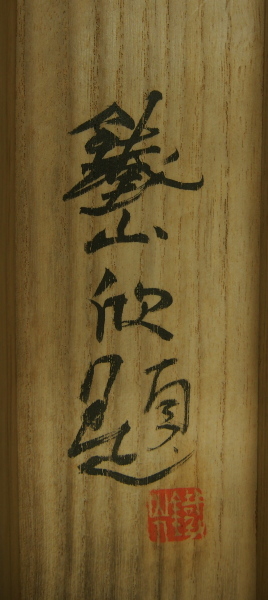 鐵山欣題